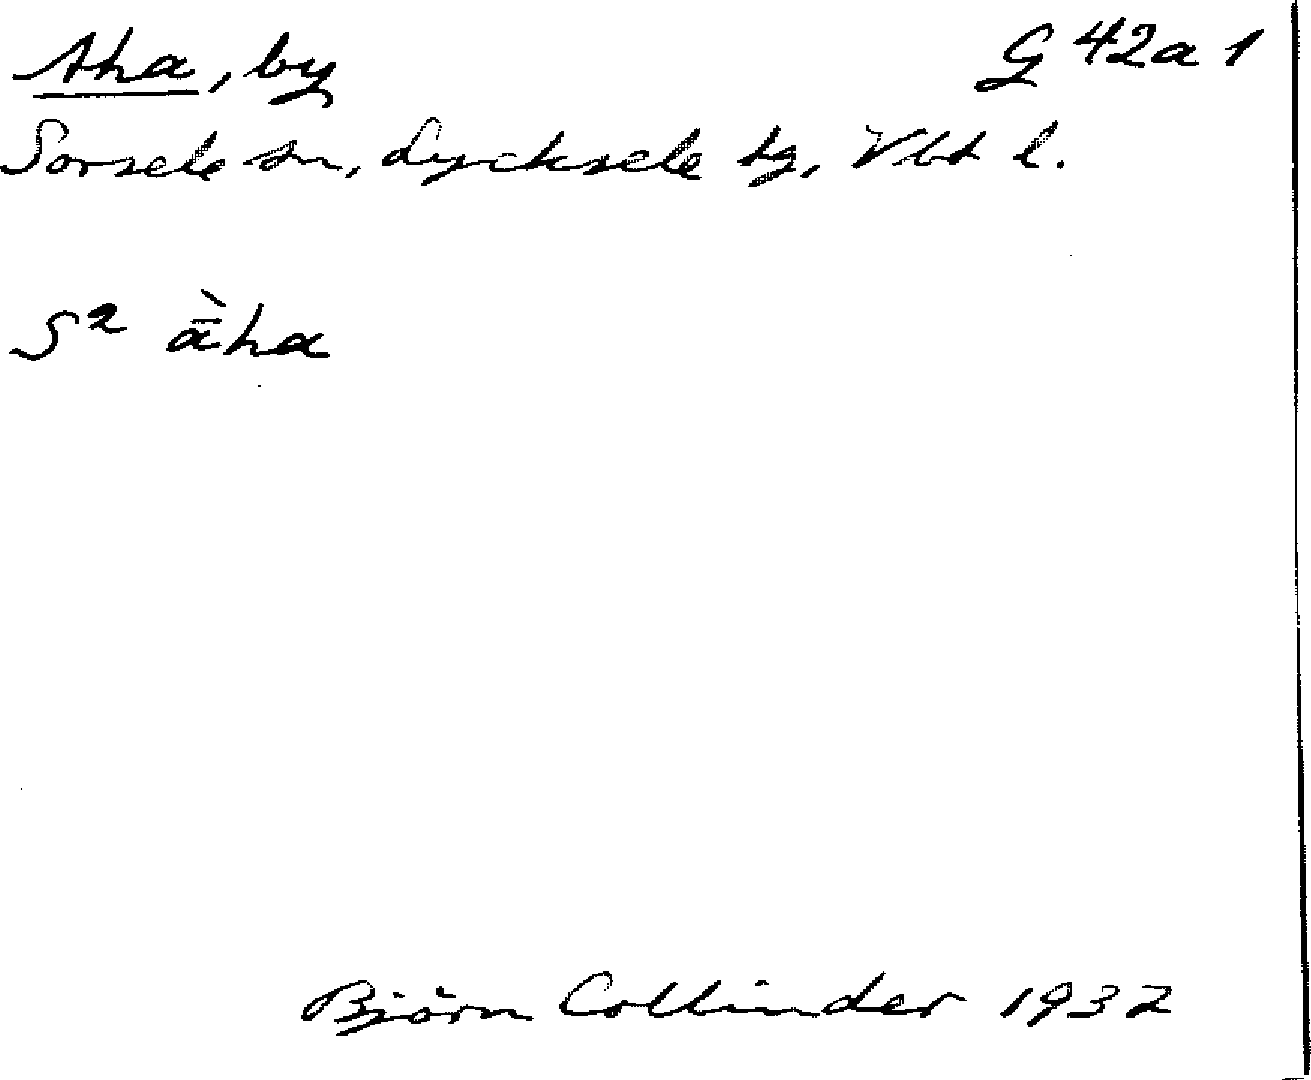 Aha, by G 42a 1
Sorsele sn, Lycksele tg, Vbt l.
S² ā̀ha
Björn Collinder 1932